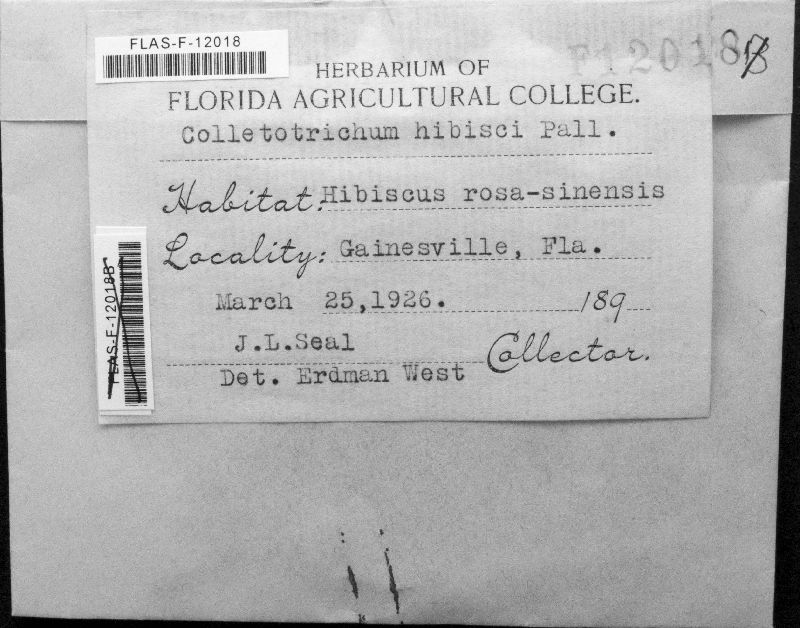 FLAS-F-12018
F12018B
HERBARIUM OF
FLORIDA AGRICULTURAL COLLEGE.
Colletotrichum hibisci Pall.
Habitat: Hibiscus rosa-sinensis
Locality: Gainesville, Fla.
March 25,1926. 189
J.L.Seal Collector.
Det. Erdman West
FLAS-F-12018B